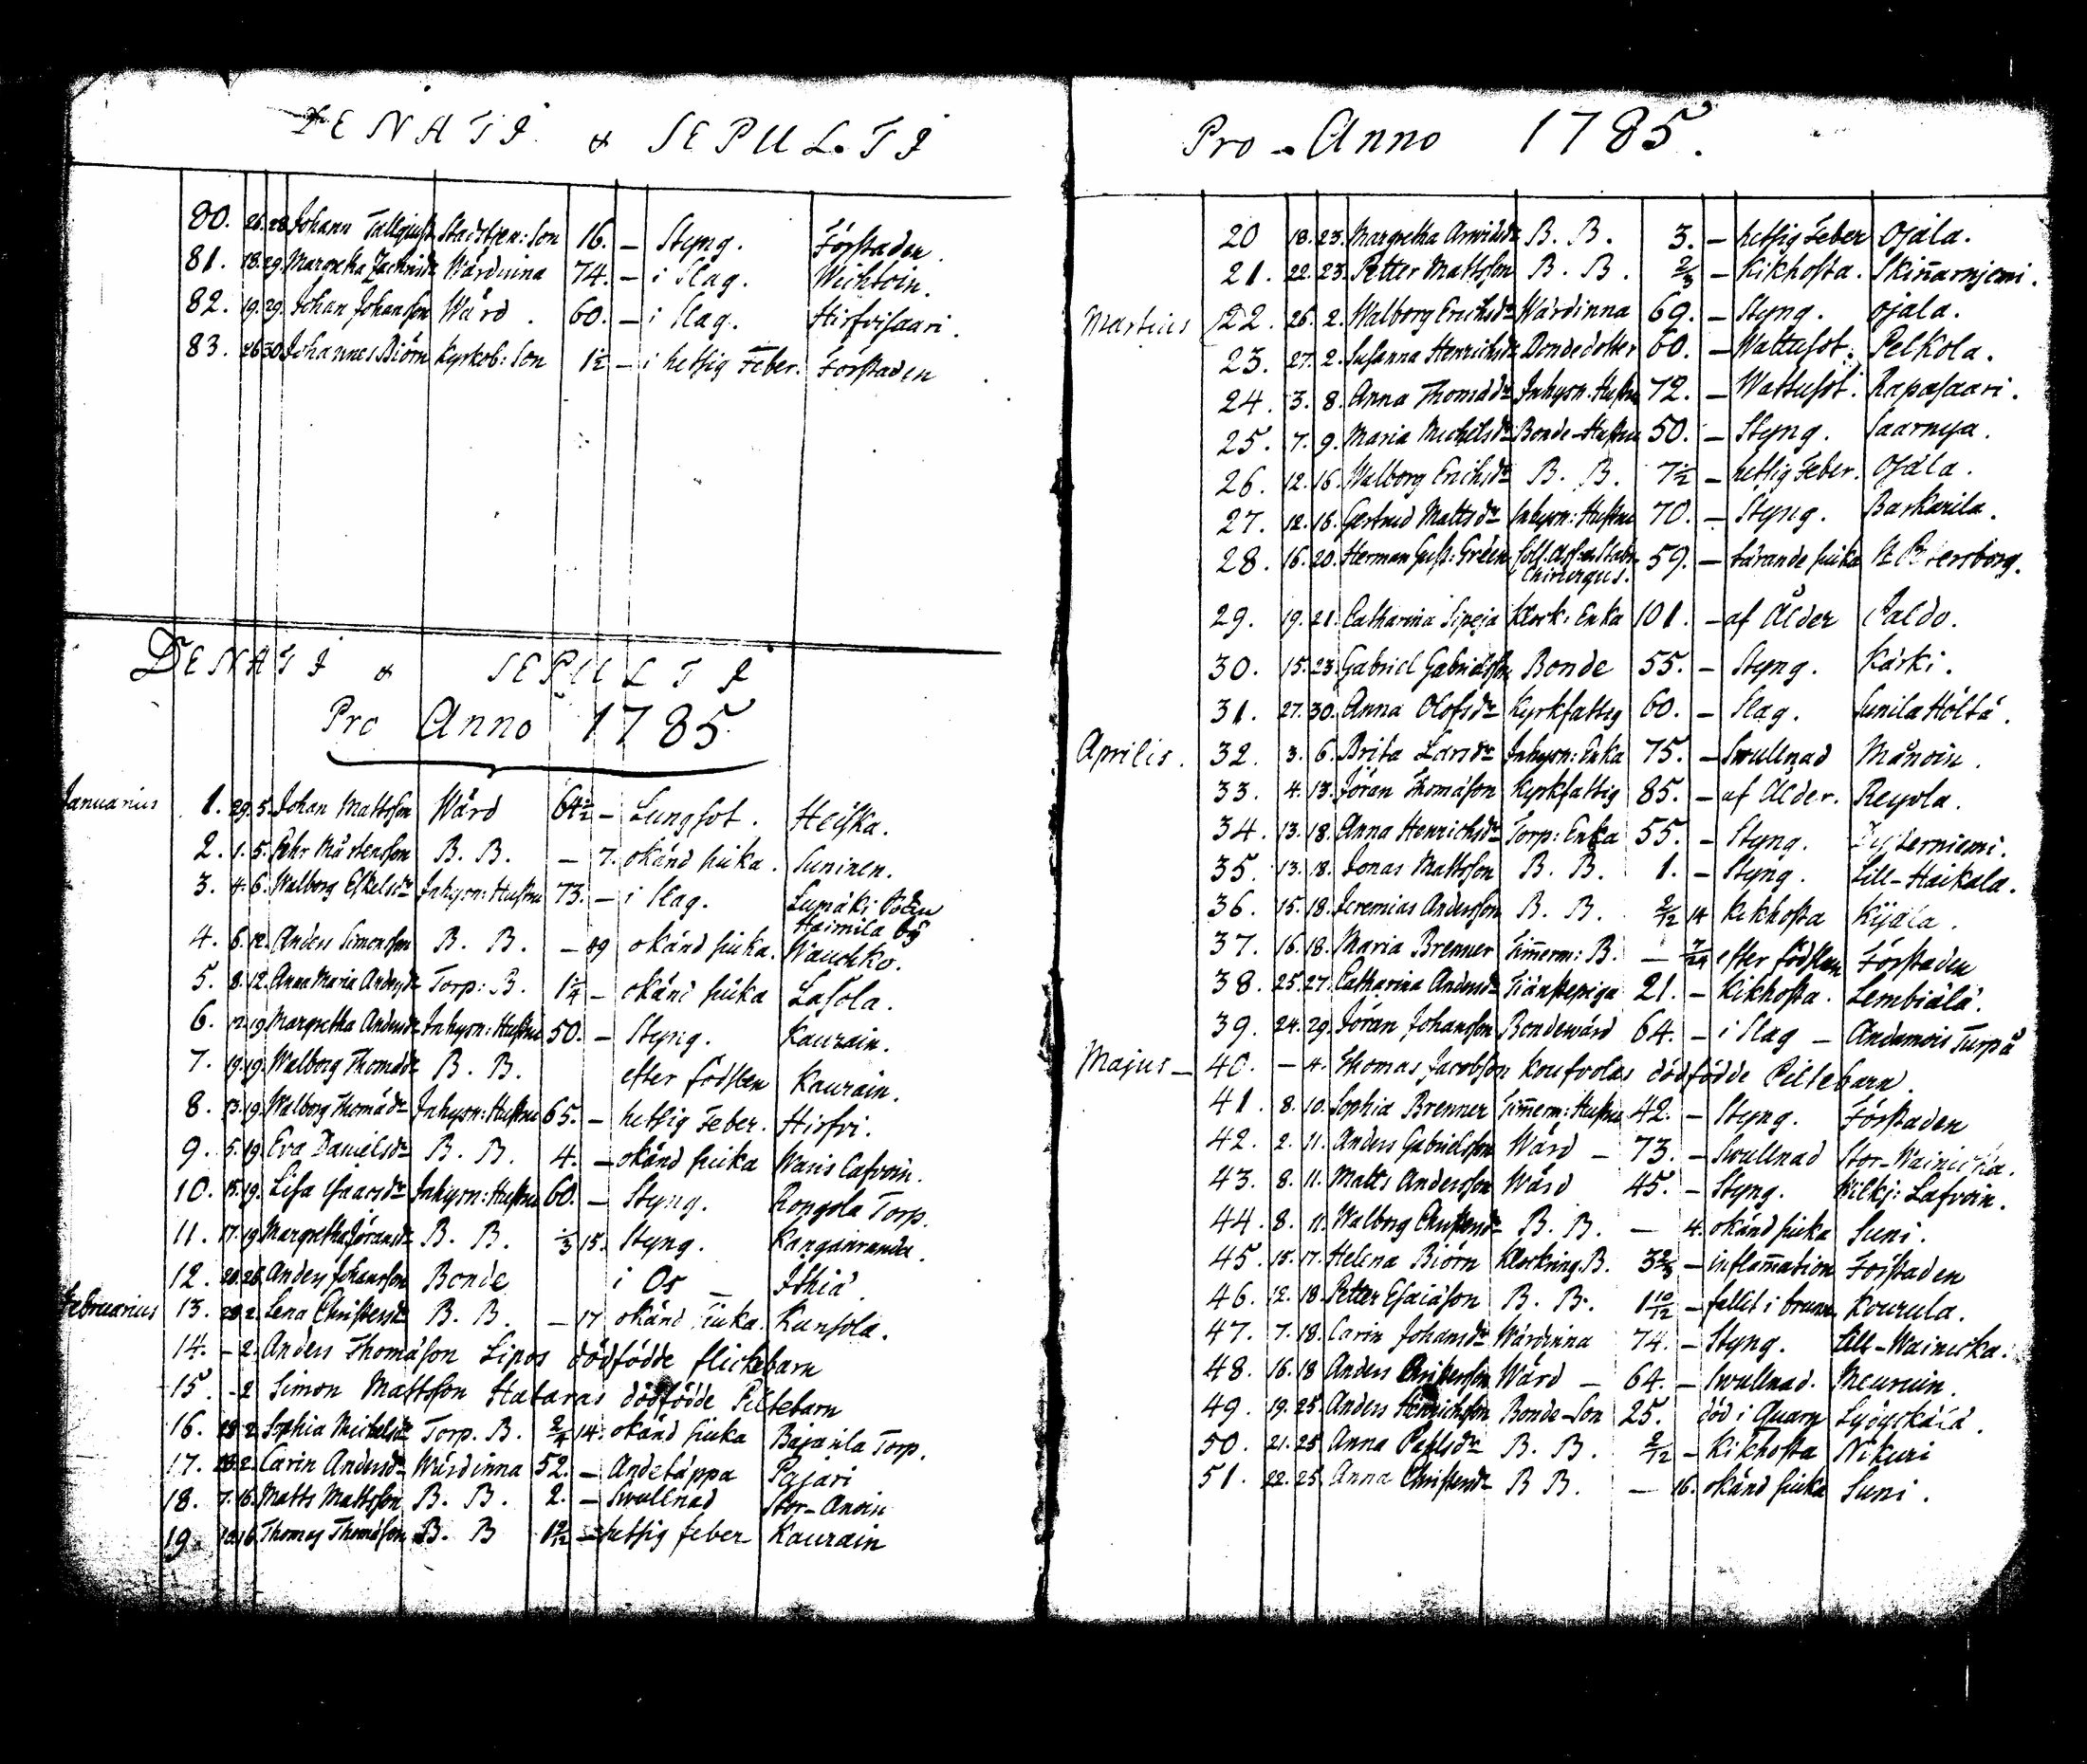 DENATI & SEPULTI
80. 26. 28. Johann Tallqvist Stadstjen: Son 16. – Styng. Förstaden.
81. 18. 29. Margretha Wärdinna 74. – i Slag. Wichtoin.
82. 19. 29. Johan Johansson Wärd. 60. – i Slag. Hirfvisaari.
83. 26. 30. Johannes Biörn Kyrkob: Son 1½ – i hetsig Feber. Förstaden
DENATI & SEPULTI
Pro Anno 1785
Januarius 1. 29. 5. Johan Mattsson Wärd 64½ – Lungsot. Heiska.
2. 1. 5. Pehr Mårtensson B. B. – 7. okänd siuka. Suninen.
3. 4. 6. Walborg Eskelsdr Inhysn: Hustru 73. – i Slag. Lumäki
Haimila by
4. 6. 12. Anders Simonsson B. B. – 89 okänd siuka. Wauhko.
5. 8. 12. Anna Maria Andersdr Torp: B. 1¼ – okänd siuka Lasola.
6. 12. 19. Margretha Andersdr Inhysn: Hustru 50. – Styng. Kaurain.
7. 19. 19. Walborg Thomædr B. B. efter födslen Kaurain.
8. 13. 19. Walborg Thomædr Inhysn: Hustru 65. – hetsig Feber. Hirfvi.
9. 5. 19. Eva Danielsdr B. B. 4. – okänd siuka Waris Lafvoin.
10. 15. 19. Lisa Isaacsdr Inhysn: Hustru 60. – Styng. Rongola Torp.
11. 17. 19. Margretha Jöransdr B. B. ⅓ 15. Styng. Kangasranda.
12. 20. 26. Anders Johansson Bonde i Os – Ithiä.
Februarius 13. 28. 2. Lena Christersdr B. B. – 17 okänd siuka. Kansola.
14. – 2. Anders Thomæson Lipos dödfödde flickebarn
15. – 2 Simon Mattsson Hataras dödfödde Piltebarn
16. 28. 2. Sophia Michelsdr Torp. B. 2/4 14. okänd siuka Bajarila Torp.
17. 28. 2. Carin Andersdr Wärdinna 52. – Andetäppa Pajari
18. 7. 16. Matts Mattsson B. B. 2. – Swullnad Stor-Anoin
19. 10. 16. Thomas Thomæson B. B 1 9/12 – hetsig feber Kaurain
Pro – Anno 1785.
20 18. 23. Margretha Arwidsdr B. B. 3. – hetsig Feber Ojala.
21. 22. 23. Petter Mattsson B. B. ⅔ – Kikhosta. Skinnarnjemi.
Martius 22. 26. 2. Walborg Erichsdr Wärdinna 69. – Styng. Ojala.
23. 27. 2. Susanna Henrichsdr Bondedotter 60. – Wattusot. Pelkola.
24. 3. 8. Anna Thomædr Inhysn: Hustru 72. – Wattusot. Rapasaari.
25. 7. 9. Maria Michelsdr Bonde-Hustru 50. – Styng. Saarnya.
26. 12. 16. Walborg Erichsdr B. B. 7½ – hetsig Feber. Ojala.
27. 12. 16. Gertrud Mattsdr Inhysn: Hustru 70. – Styng. Barkarila.
28. 16. 20. Herman Gust: Green Coll. Asses. Stabs Chirurgus. 59. – tärande siuka St Petersborg.
29. 19. 21. Catharina Sipeja Klock: Enka 101. – af Ålder Paldo.
30. 15. 23. Gabriel Gabrielsson Bonde 55. – Styng. Kärki.
31. 27. 30. Anna Olofsdr Kyrkfattig 60. – Slag. Sunila Höltä.
Aprilis. 32. 3. 6. Brita Larsdr Inhysn: Enka 75. – Swullnad Månoin.
33. 4. 13. Jöran Thomæson Kyrkfattig 85. – af Ålder. Reyola.
34. 13. 18. Anna Henrichsdr Torp: Enka 55. – Styng.
35. 13. 18. Jonas Mattsson B. B. 1. – Styng. Lill-Haikala.
36. 15. 18. Jeremias Andersson B. B. 2/12 14 Kikhosta Kijala.
37. 16. 18. Maria Brenner Timerm: B. – 7/24 efter födslen Förstaden
38. 25. 27. Catharina Andersdr Tiänstepiga 21. – Kikhosta. Lembiälä.
39. 24. 29. Jöran Johansson Bondewärd 64. – i Slag – Andamois Turpå
Majus – 40. – 4. Thomas Jacobsson Koufvolas dödfödde Piltebarn.
41. 8. 10. Sophia Brenner Timerm: Hustru 42. – Styng. Förstaden
42. 2. 11. Anders Gabrielsson Wärd – 73. – Swullnad Stor-Wainicka.
43. 8. 11. Matts Andersson Wärd 45. – Styng. Wilkj: Lafvoin.
44. 8. 11. Walborg Christersdr B. B. – 4. okänd siuka Suni.
45. 15. 17. Helena Biörn Klockring. B. 3⅔ – inflamation Förstaden
46. 12. 18. Petter Esaiæson B. B. 1 10/12 – fallit i brunn Kourula.
47. 7. 18. Carin Johansdr Wärdinna 74. – Styng. Lill-Wainicka.
48. 16. 18 Anders Christersson Wärd – 64. – Swullnad. Meuruin.
49. 19. 25. Anders Henrichsson Bonde-Son 25. död i Quarn
50. 21. 25 Anna Pafvelsdr B. B. 2/12 – Kikhosta Nikuri
51. 22. 25. Anna Christersdr B B. – 16. okänd siuka Suni.